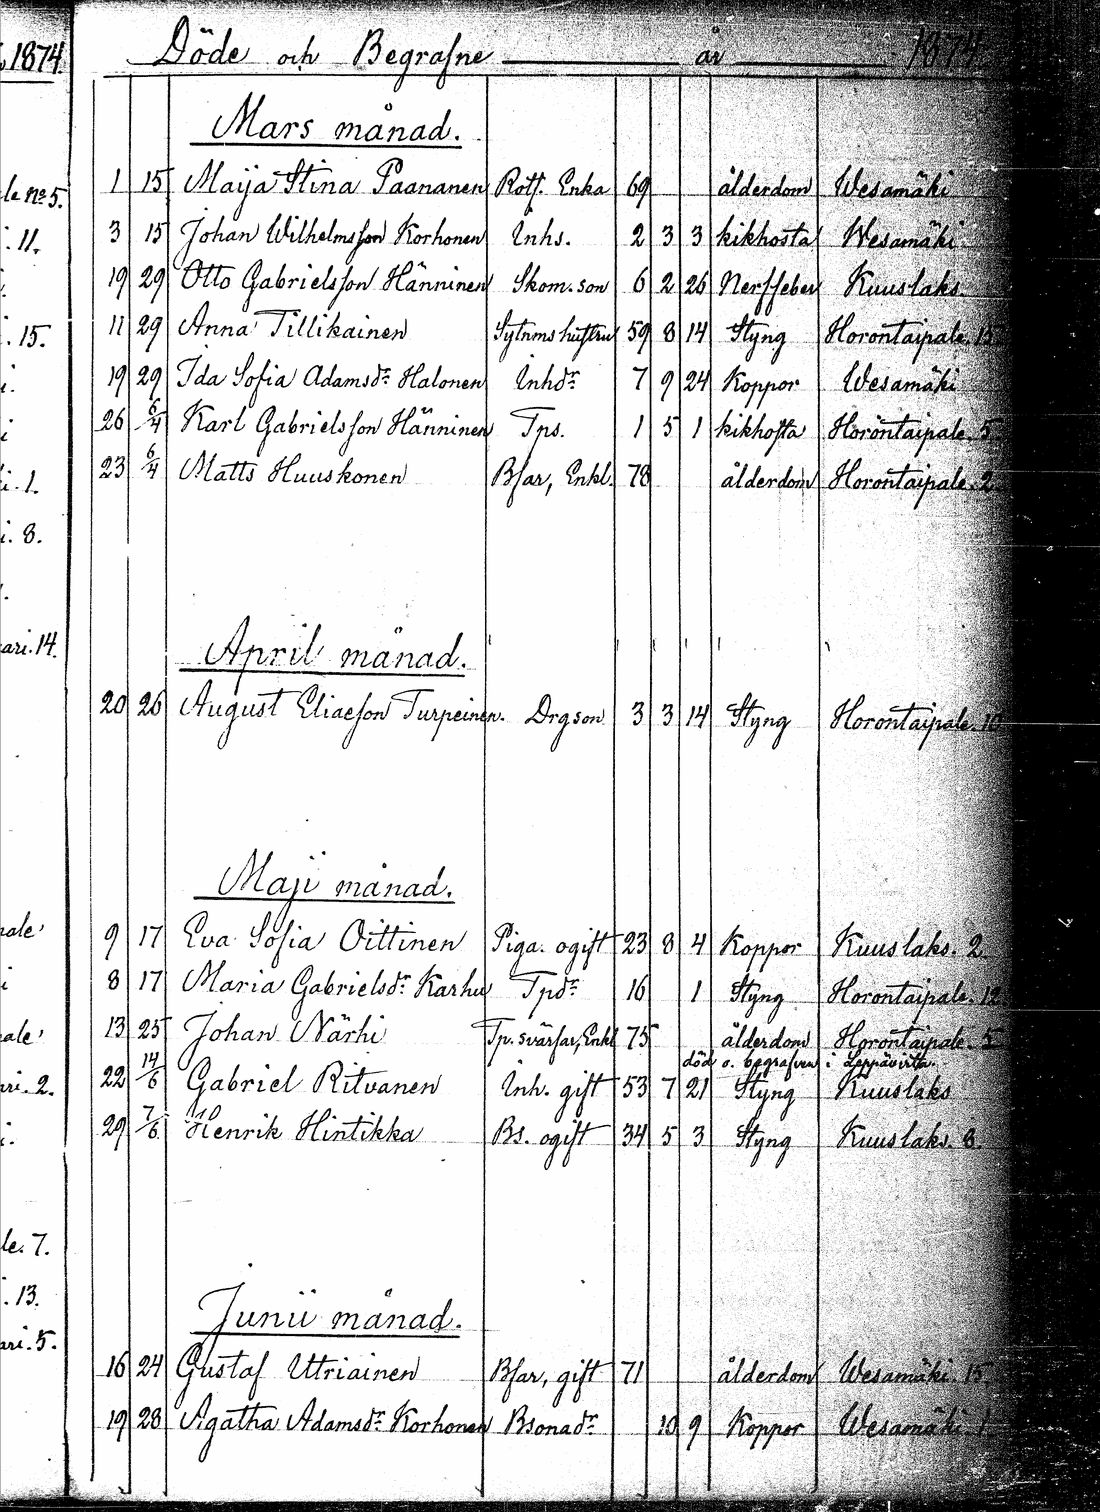 1874.
Döde och Begrafne år 1874.
Mars månad.
1 15 Maija Stina Paananen Rotf. Enka 69 ålderdom Wesamäki
le No 5.
3 15 Johan Wilhelmsson Korhonen Inhs. 2 3 3 kikhosta Wesamäki.
. 11.
19 29 Otto Gabrielsson Hänninen Skom. son 6 2 26 Nerffeber Kuuslaks.
11 29 Anna Tillikainen Sytnms hustru 59 8 14 Styng Horontaipale. 15
. 15.
19 29 Ida Sofia Adamsdr Halonen Inhdr 7 9 24 Koppor Wesamäki
i.
26 6/4 Karl Gabrielsson Hänninen Tps. 1 5 1 kikhosta Horontaipale. 5.
i
23 6/4 Matts Huuskonen Bfar, Enkl. 78 ålderdom Horontaipale. 2.
i. 1.
i. 8.
April månad.
ari. 14.
20 26 August Eliaeson Turpeinen. Drgson 3 3 14 Styng Horontaipale. 10
Maji månad.
9 17 Eva Sofia Oittinen Piga. ogift 23 8 4 Koppor Kuuslaks. 2.
ale
8 17 Maria Gabrielsdr Karhu Tpdr 16 1 Styng Horontaipale. 12.
i
13 25 Johan Närhi Tp. svärfar, Enkl 75 ålderdom Horontaipale. 5
ale
död o. begrafven i Leppävirta.
22 14/6 Gabriel Ritvanen Inh. gift 53 7 21 Styng Kuuslaks
ri. 2.
29 7/6 Henrik Hintikka Bs. ogift 34 5 3 Styng Kuuslaks. 8.
i.
le. 7.
Junii månad.
. 13.
ari. 5.
16 24 Gustaf Utriainen Bfar, gift 71 ålderdom Wesamäki. 15.
19 28 Agatha Adamsdr Korhonen Bsonadr 10 9 Koppor Wesamäki. 1.